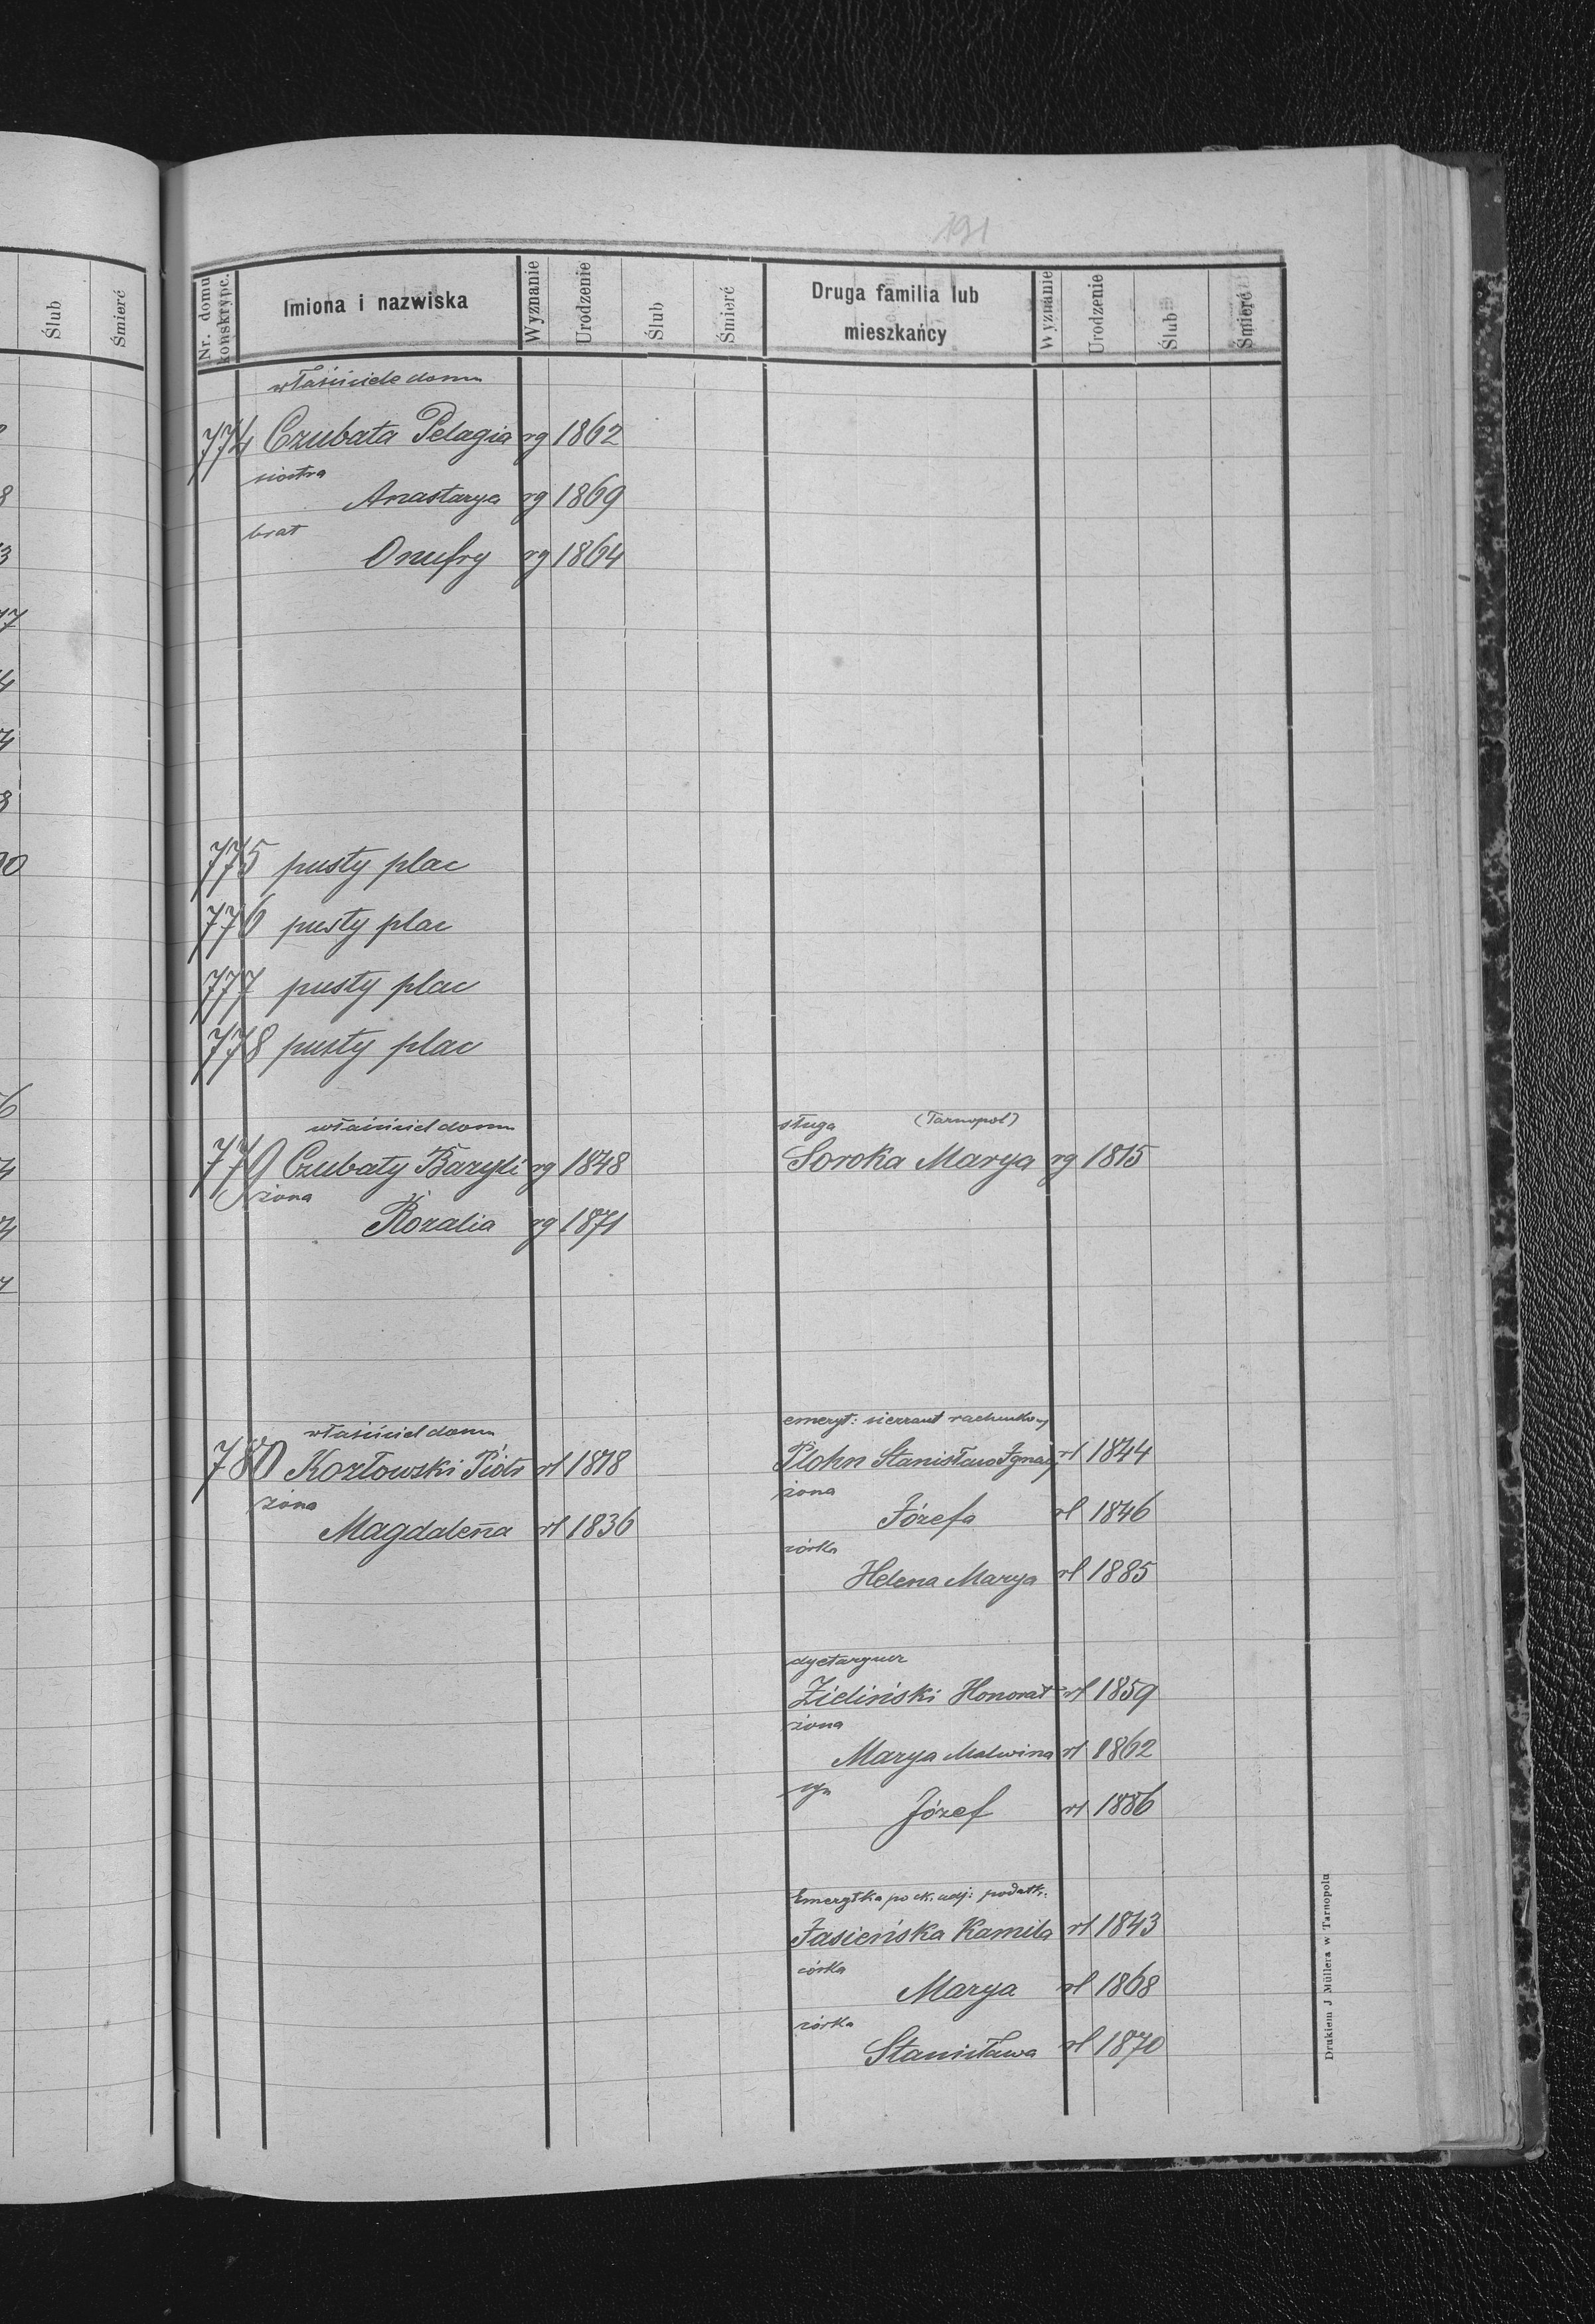 191
Ślub
Śmierć
Nr. domu konskrypc.
Imiona i nazwiska
Wyznanie
Urodzenie
Ślub
Śmierć
Druga familia lub
mieszkańcy
Wyznanie
Urodzenie
Ślub
Śmierć
właściciele domu
774 Czubata Pelagia rg 1862
siostra
Anastazya rg 1869
brat
Onufry rg 1864
775 pusty plac
776 pusty plac
777 pusty plac
778 pusty plac
właściciel domu
779 Czubaty Bazyli rg 1848
żona
Rozalia rg 1871
sługa (Tarnopol)
Soroka Marya rg 1815
właściciel domu
780 Kozłowski Piotr rł 1818
żona
Magdalena rł 1836
emeryt: sierzant rachunkowy
Plohn Stanisław Ignacy rł 1844
żona
Józefa rł 1846
córka
Helena Marya rł 1885
dyetaryusz
Zieliński Honorat rł 1859
żona
Marya Malwina rł 1862
syn
Józef rł 1886
Emerytka po ck. adj: podatk.
Jasieńska Kamila rł 1843
córka
Marya rł 1868
córka
Stanisława rł 1870
Drukiem J Müllera w Tarnopolu